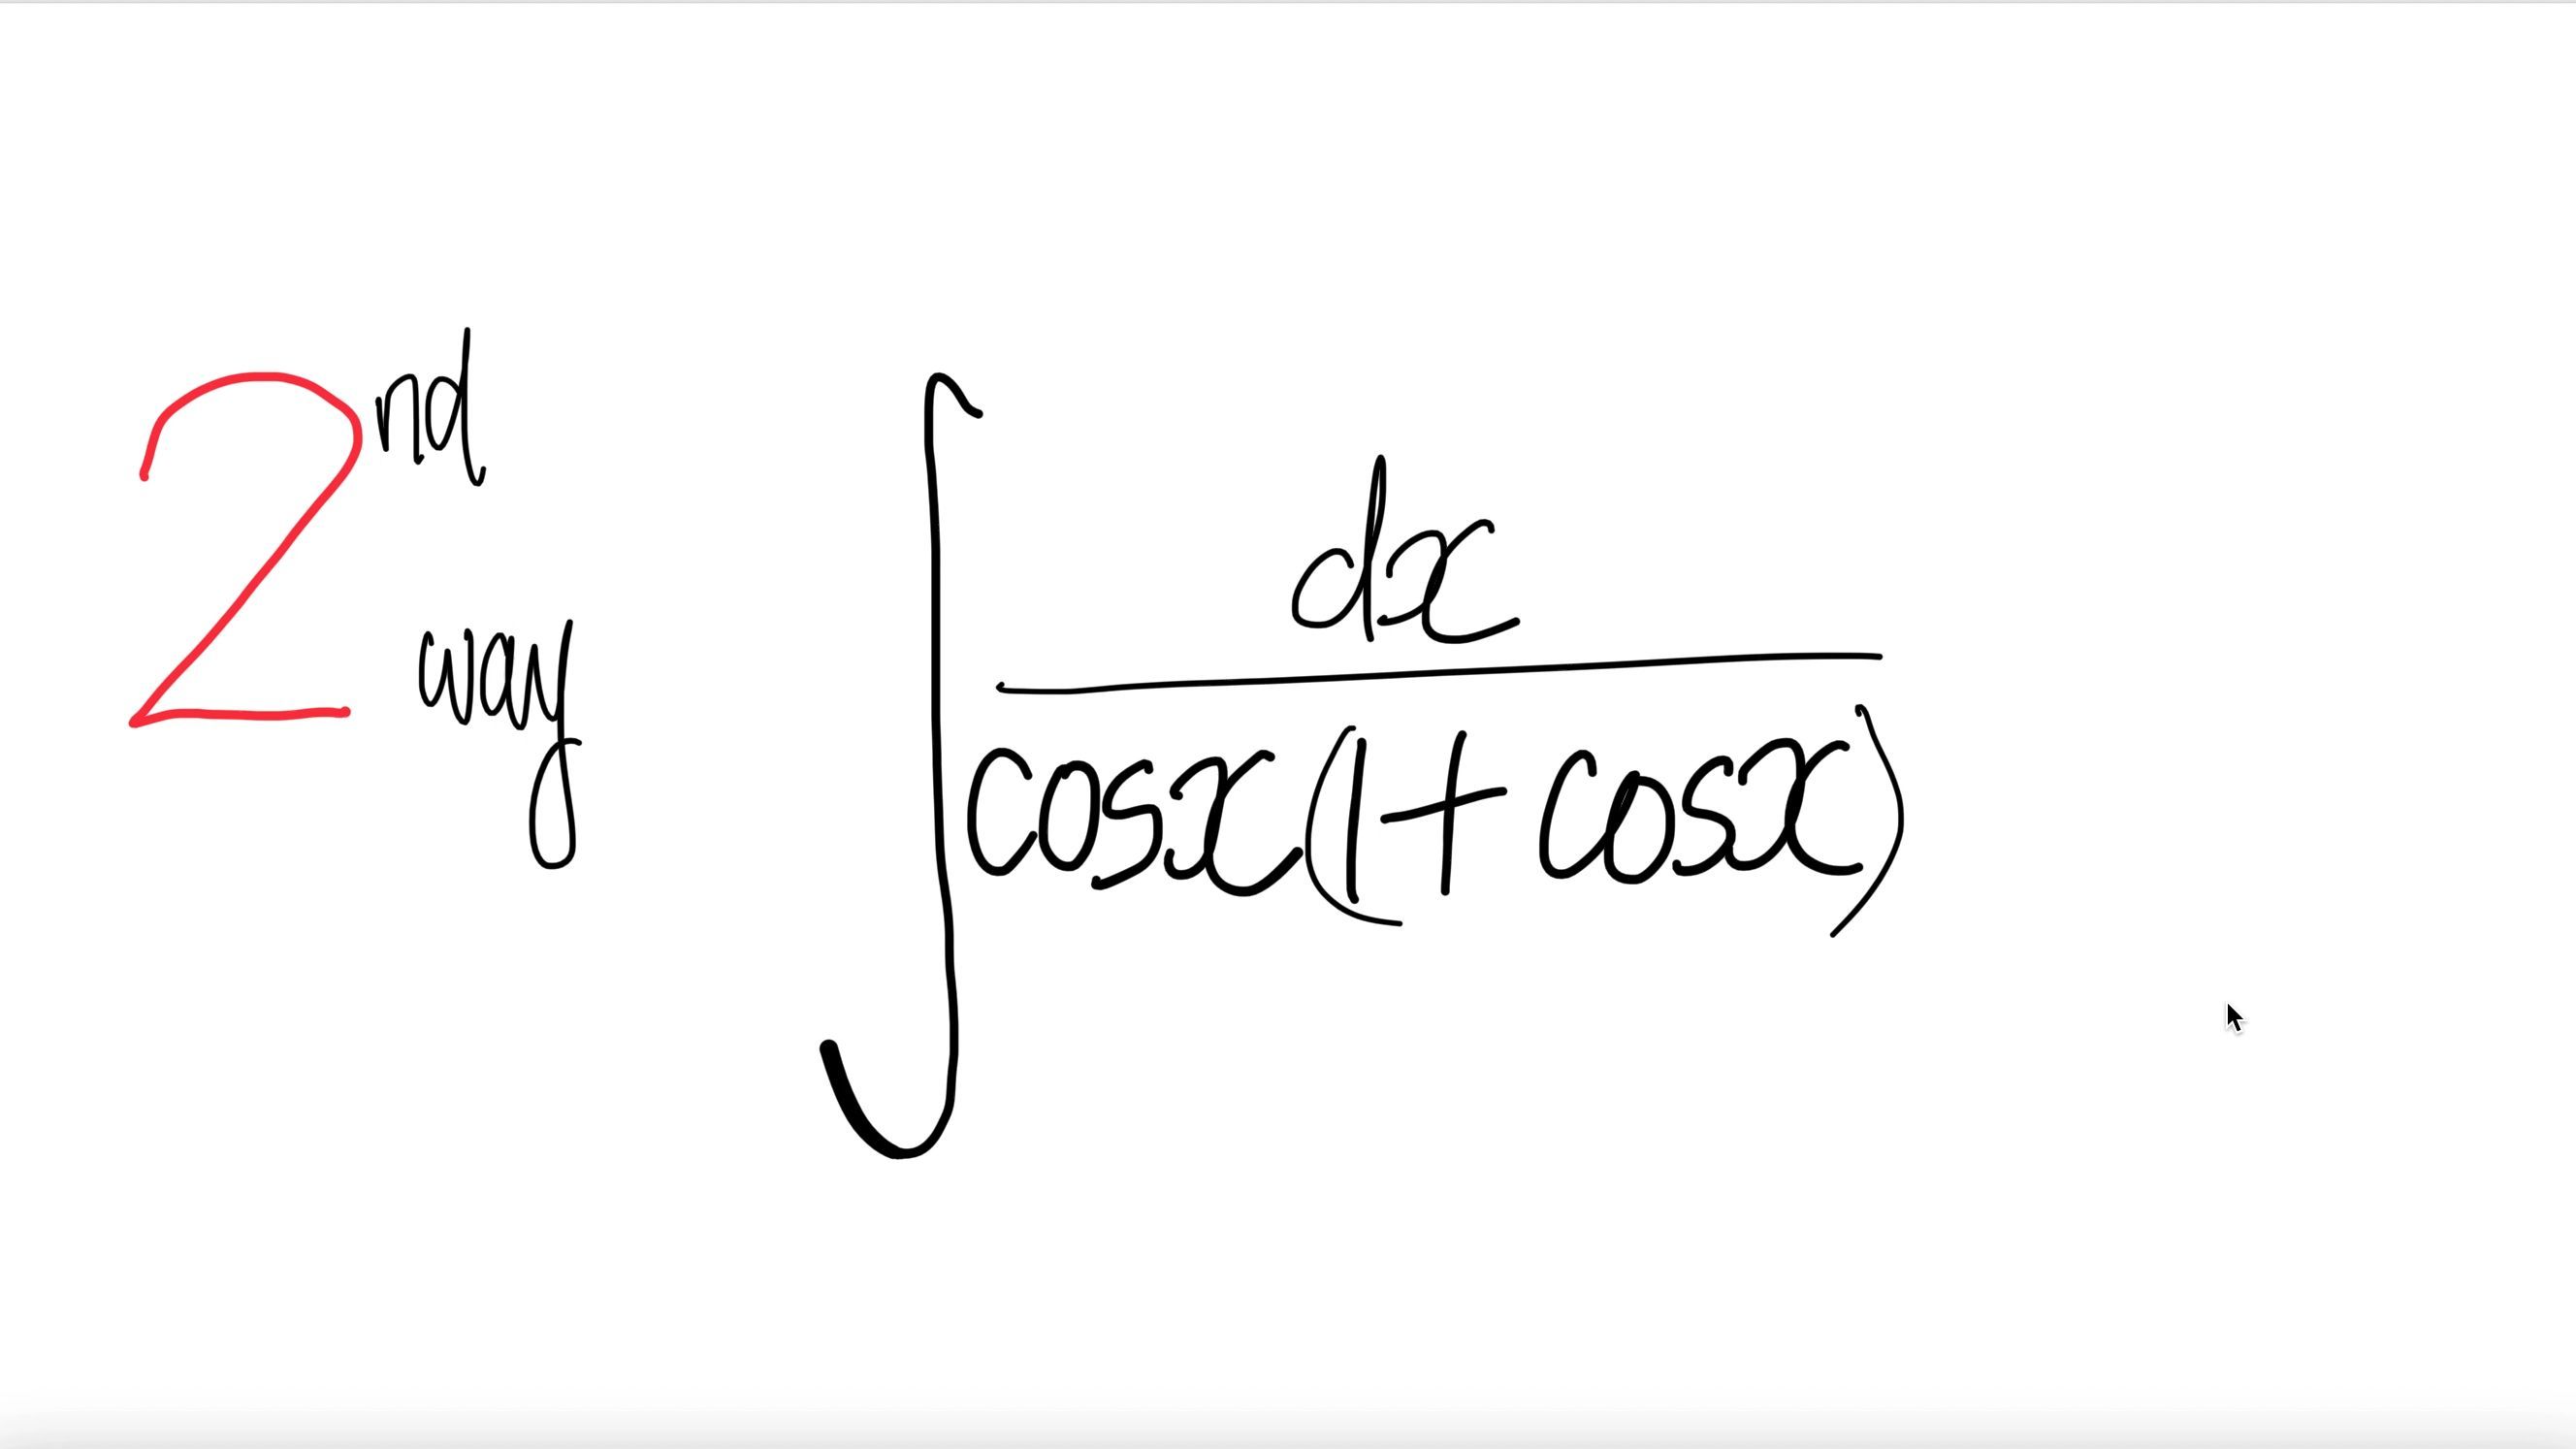 2nd way
∫ dx
cosx(1+cosx)